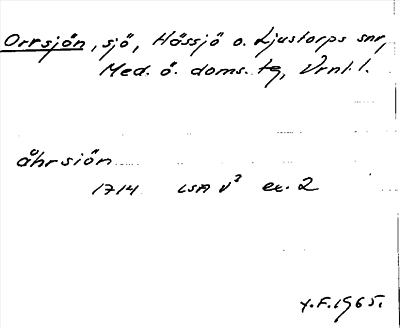 Orrsjön, sjö, Hässjö o. Ljustorps snr,
Med. ö. doms. tg, Vrnl. l.
åhrsiön
1714 LSA V² ex. 2
Y.F. 1965.